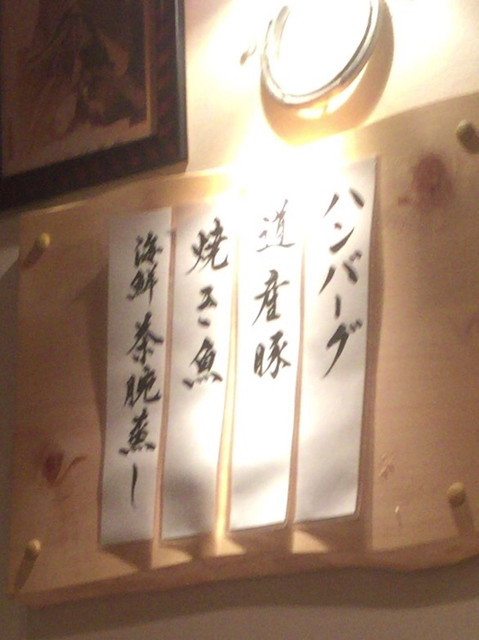 ハンバーグ
道産豚
焼き魚
海鮮茶腕蒸し